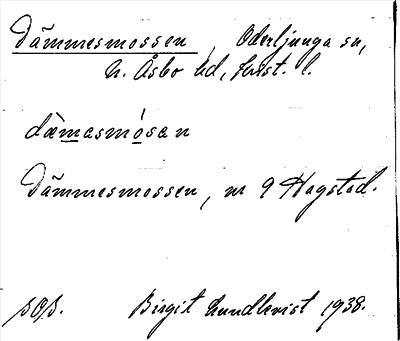 Dämmesmossen, Oderljunga sn,
N. Åsbo hd, Krist. l.
dämasmósan
Dämmesmossen, nr 9 Hagstad.
Birgit Lundkvist 1938.